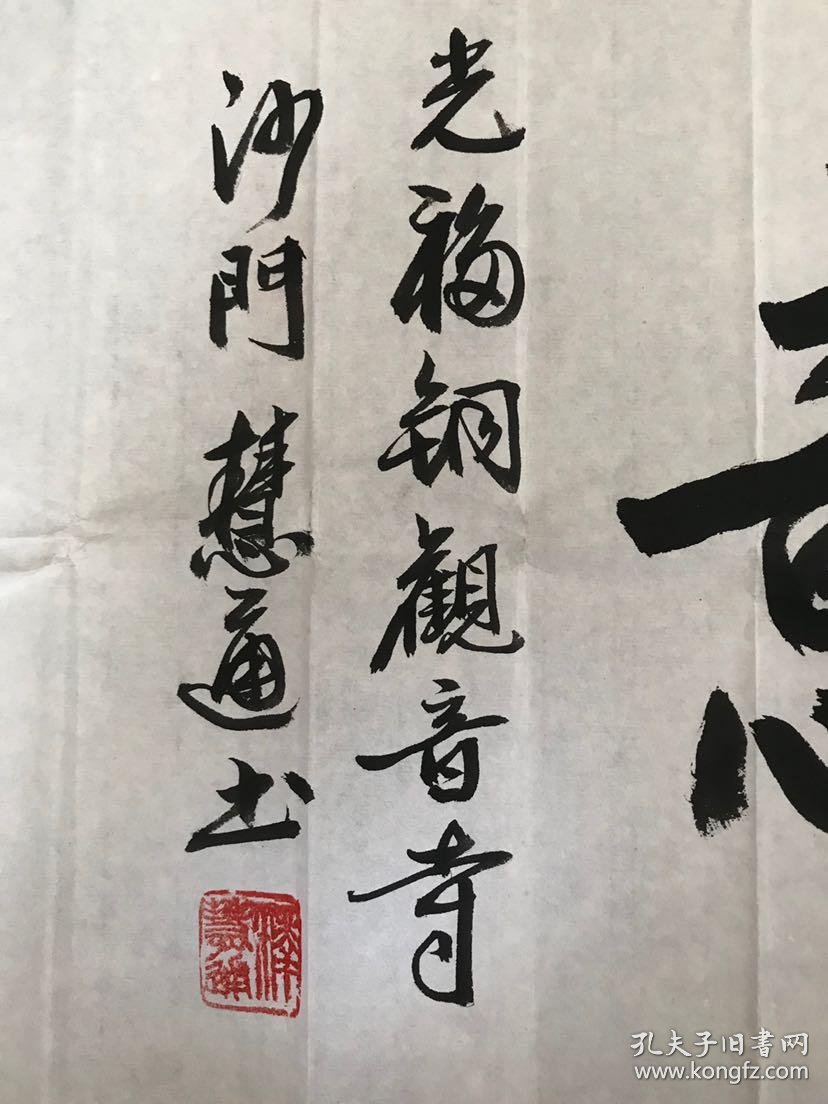 光福铜觀音寺
沙門慧通书
释慧通
孔夫子旧书网
www.kongfz.com